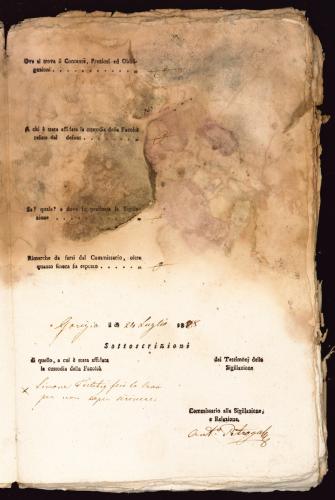 Ove si trova il Contante, Preziosi ed Obbli-
gazioni . . . . . . . . . . „
A chi è stata affidata la custodia della Facoltà
relitta dal defunt . . . . . . . „
Se? quale? e dove fu praticata la Sigilla-
zione . . . . . . . . . . „
Rimarche da farsi dal Commissario, oltre
quanto finora fu esposto . . . . „
Gorizia li 24 Luglio 18
Sottoscrizioni
di quello, a cui è stata affidata
la custodia della Facoltà
dei Testimonj della
Sigillazione
x Simone
per non saper scrivere
Commissario alla Sigillazione,
e Relazione,
Ant.o